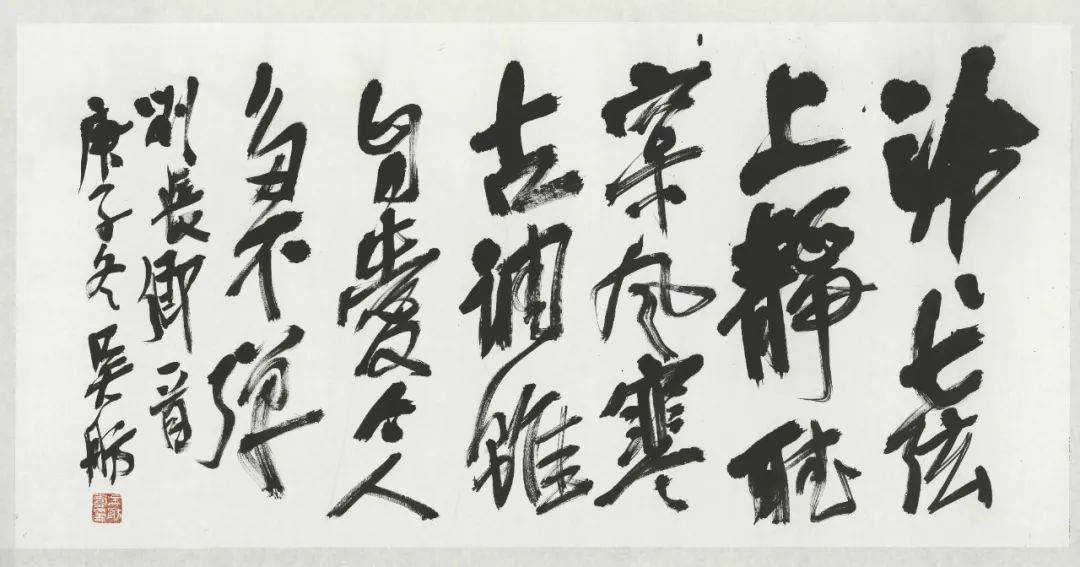 泠〻七弦
上靜聽
枀風寒
古調雖
自愛今人
多不彈
劉長卿一首
庚子冬吳